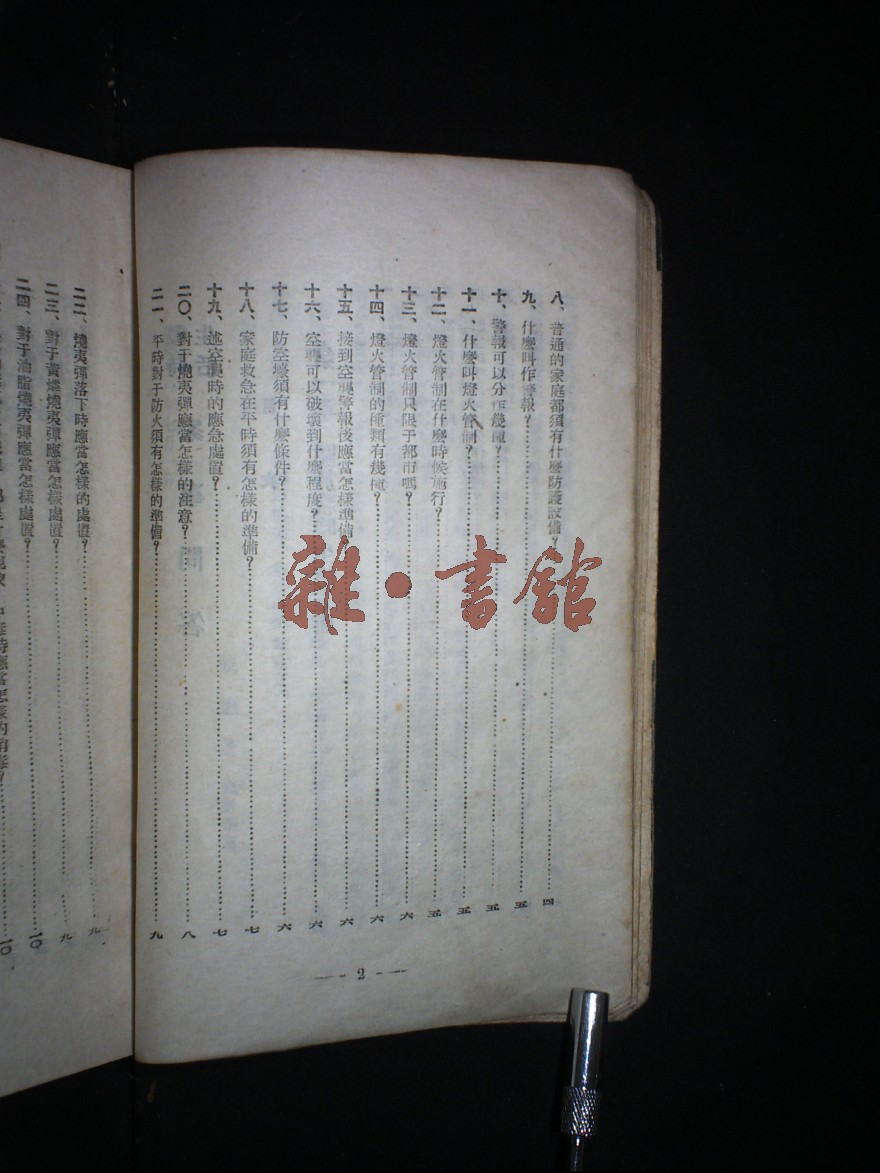 八、普通的家庭都須有什麽防護設備？……四
九、什麽叫作警報？……五
十、警報可以分作幾種？……五
十一、什麽叫燈火管制？……五
十二、燈火管制在什麽時候施行？……五
十三、燈火管制只限于都市嗎？……六
十四、燈火管制的種類有幾種？……六
十五、接到空襲警報後應當怎樣準備……六
十六、空襲可以破壞到什麽程度？……六
十七、防空壕須有什麽條件？……六
十八、家庭救急在平時須有怎樣的準備？……七
十九、述空襲時的應急處置？……七
二〇、對于燒夷彈應當怎樣的注意？……八
二一、平時對于防火須有怎樣的準備？……九
— - 2 - —
二二、燒夷彈落下時應當怎樣的處置？……九
二三、對于黃燐燒夷彈應當怎樣處置？……九
二四、對于油脂燒夷彈應當怎樣處置？……10
10
雜·書館